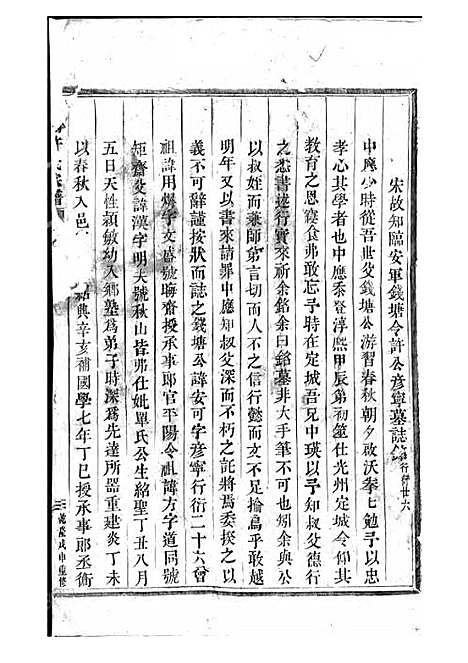 宋故知臨安軍錢塘令許公彦寧墓誌銘行衍廿六
中應少時從吾世父錢塘公游習春秋朝夕啟沃拳七勉予以忠
孝心其學者也中應忝登淳熙甲辰第初筮仕光州定城令仰其
教育之恩寢食弗敢忘予時在定城吾兄中瑛以予知叔父德行
之悉書遂行實來祈余銘余曰銘墓非大手筆不可矧余與公
以叔姪而兼師弟言切而人不之信行懿而文不足揄爲乎敢越
明年又以書來請罪中應知叔父深而不朽之託將焉委揆之以
義不可辭謹按狀而誌之錢塘公諱安可字彦寧行衍二十六曾
祖諱用燦字文盛號晦齋授承事郎官平陽令祖諱方字道同號
矩齋父諱漢字明夫號秋山皆弗仕妣單氏公生紹聖丁丑八月
五日天性穎敏幼入鄉塾爲弟子時深爲先達所器重建炎丁未
以春秋入邑 紹興辛亥補國學七年丁巳授承事郎丞衡
許氏宗譜
乾隆戊申重修